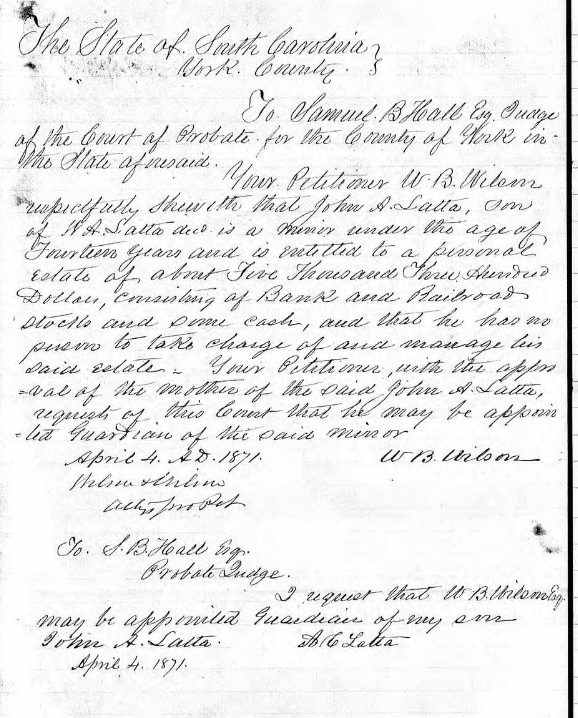 The State of South Carolina }
York County. }
To Samuel B Hall Esq Judge
of the Court of Probate for the County of York in
the State aforesaid.
Your Petitioner W B. Wilson
respectfully sheweth that John A. Latta, son
of W A. Latta decd. is a minor under the age of
Fourteen years and is entitled to a personal
Estate of about Five Thousand Three Hundred
Dollars, consisting of Bank and Railroad
stocks and some cash, and that he has no
person to take charge of and manage his
said estate - Your Petitioner, with the appro
-val of the mother of the said John A. Latta,
requests of this Court that he may be appoin
-ted Guardian of the said minor
April 4. A.D. 1871. W B. Wilson
Wilson & Wilson
Attys pro Pet
To. S. B. Hall Esq.
Probate Judge.
I request that W B. Wilson Esq.
may be appointed Guardian of my son
John A. Latta. A. C Latta
April 4. 1871.